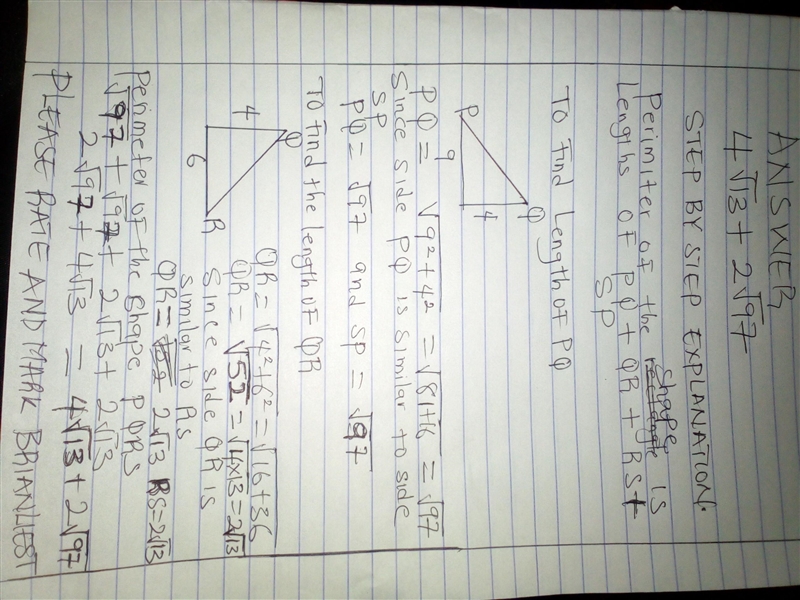 ANSWER
4√13 + 2√97
STEP BY STEP EXPLANATION.
Perimiter of the shape is
Lengths of PQ + QR + RS +
SP
TO find Length of PQ
P
Q
9
4
PQ = √9² + 4² = √81+16 = √97
Since side PQ is similar to side
SP
PQ = √97 and SP = √97
TO find the length of QR
Q
4
6
R
QR = √4²+6² = √16+36
QR = √52 = √4×13 = 2√13
Since side QR is
similar to RS
QR = 2√13 RS=2√13
Perimeter of the shape PQRS
√97 + √97 + 2√13 + 2√13
2√97 + 4√13 = 4√13 + 2√97
PLEASE RATE AND MARK BRIANLIEST